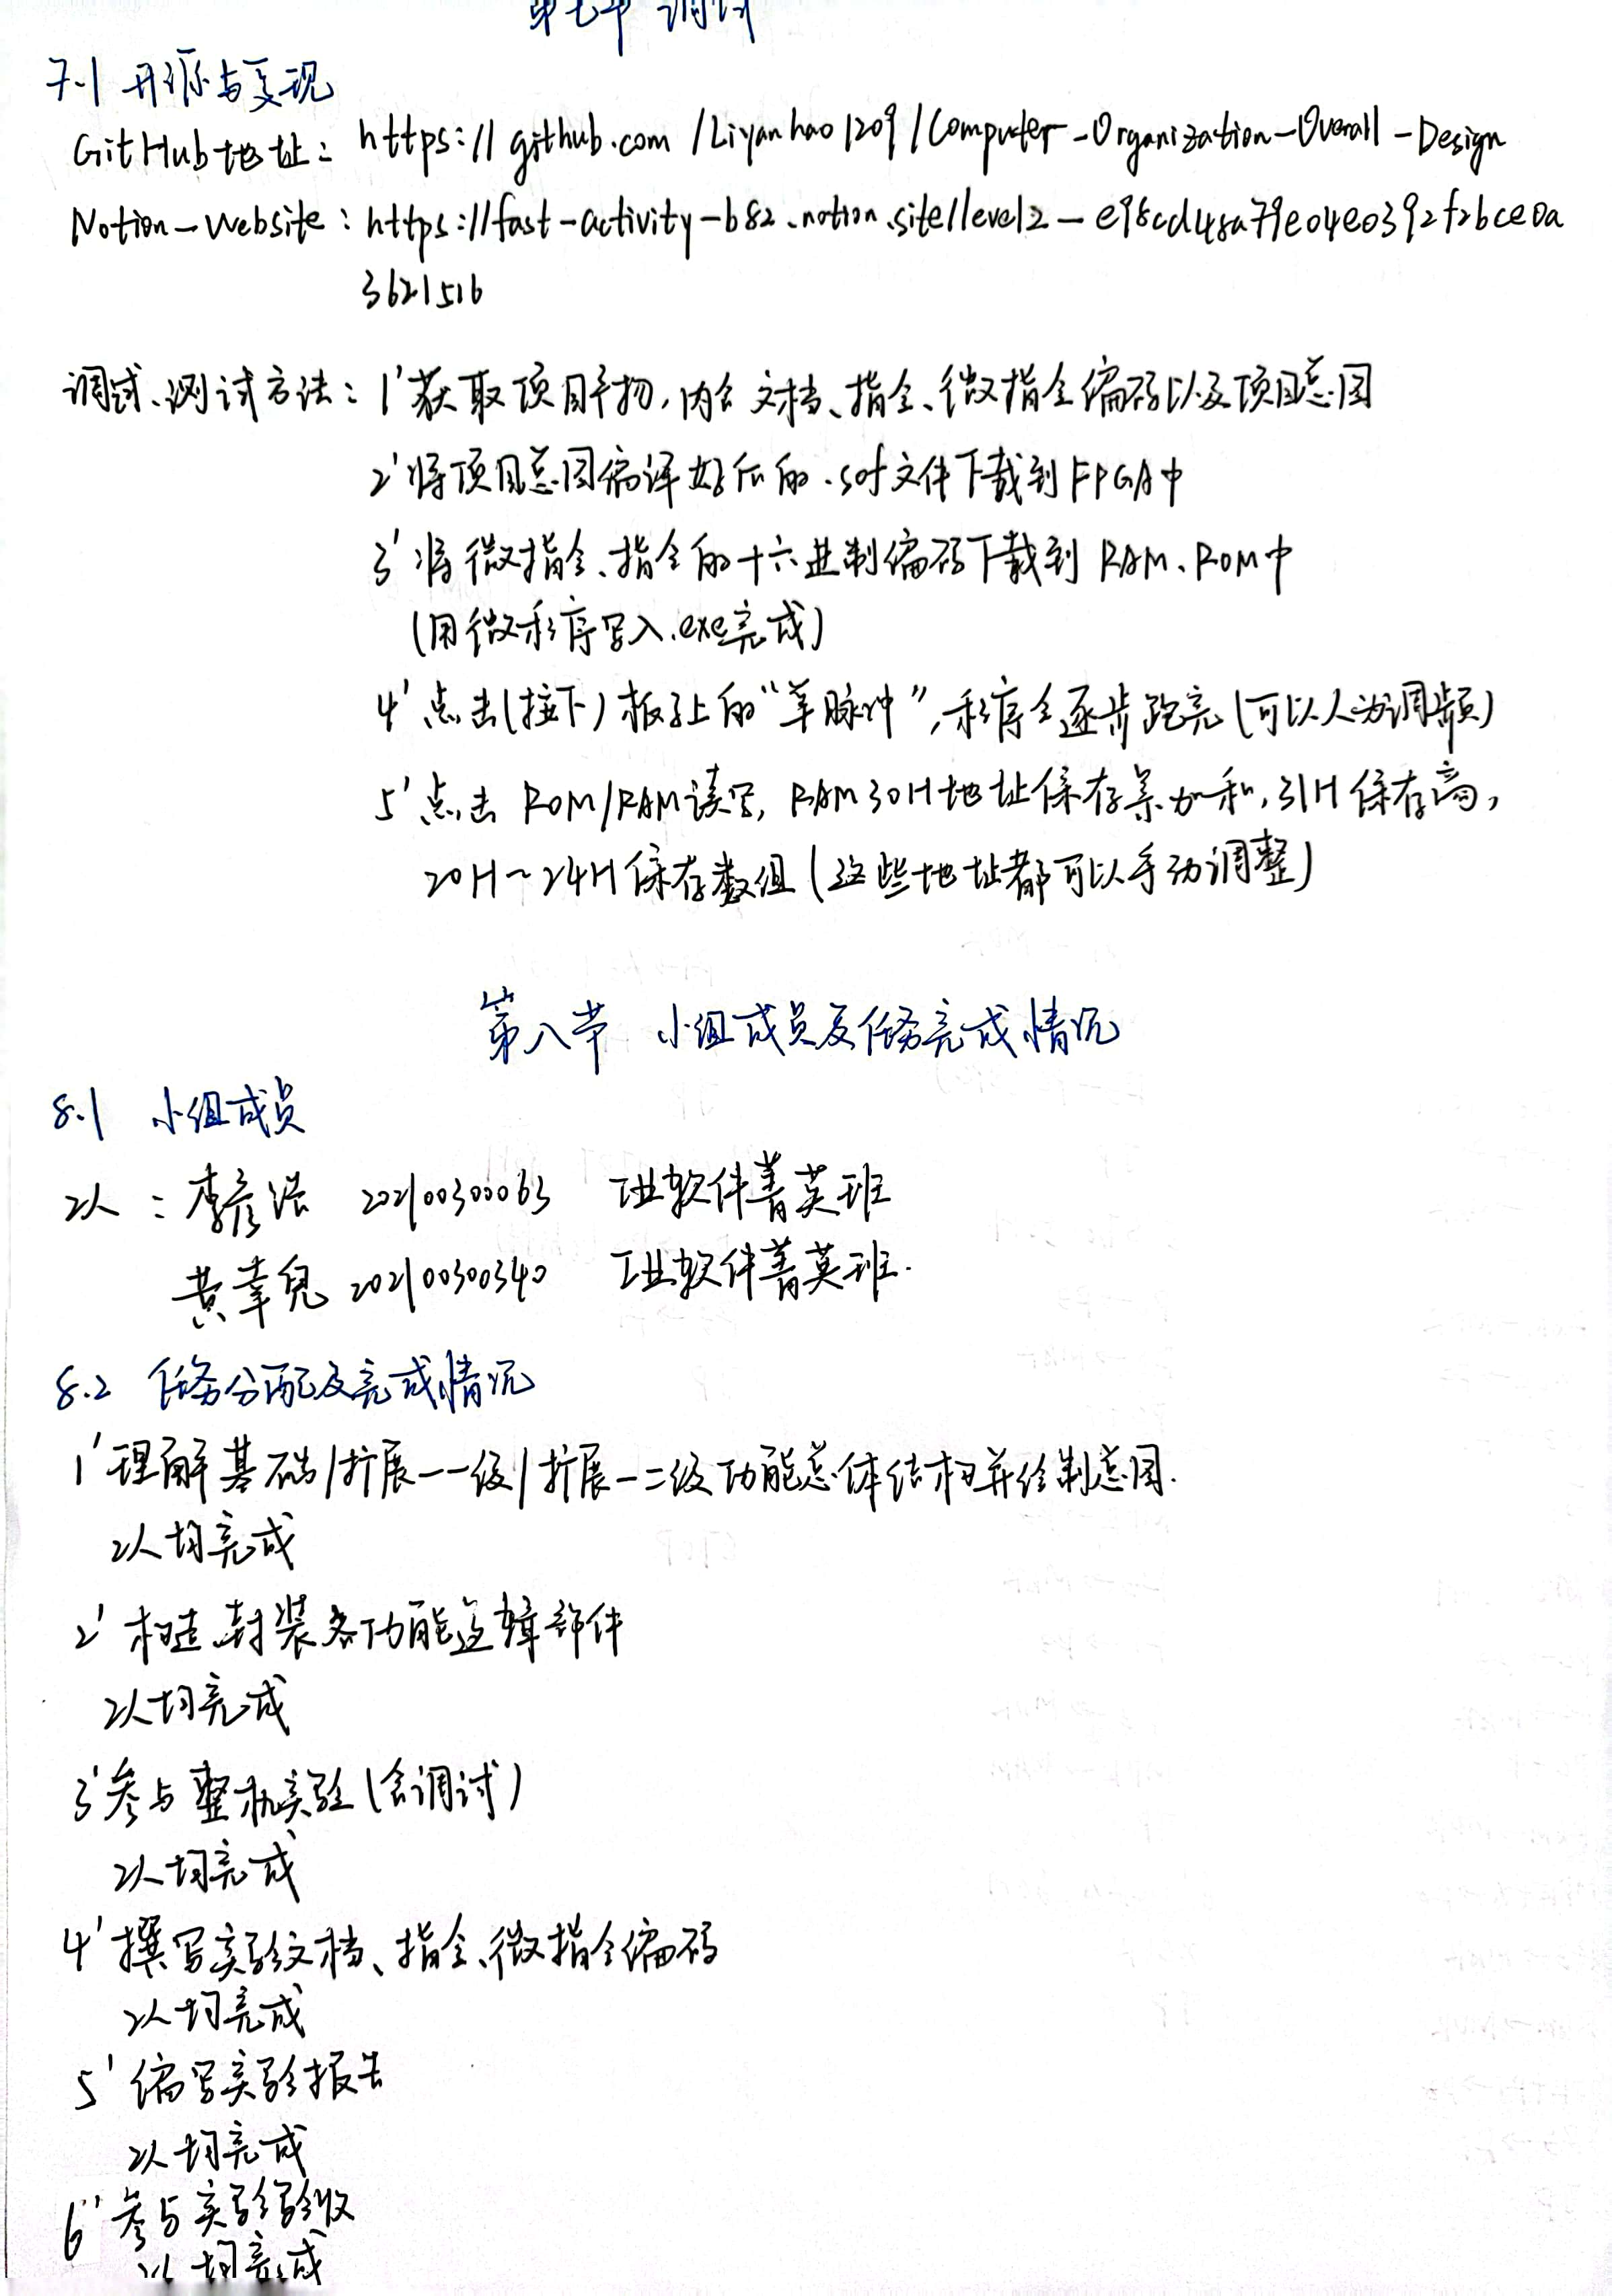 第七节 调试
7.1 开源与复现
GitHub地址: https://github.com/Liyanhao1209/Computer-Organization-Overall-Design
Notion-Website: https://fast-activity-b82.notion.site/level2-e98cd48a79e04e0392f2bce0a
3621516
调试、测试方法: 1' 获取项目,内含文档、指令、微指令编码以及项目总图
2' 将项目总图编译好后的.sof文件下载到FPGA中
3' 将微指令、指令的十六进制编码下载到RAM、ROM中
(用微程序写入.exe完成)
4' 点击(按下)板子上的“单脉冲”,程序会逐步跑完(可以人为调频)
5' 点击ROM/RAM读写, RAM 30H地址保存累加和, 31H保存商,
20H~24H保存数组(这些地址都可以手动调整)
第八节 小组成员及任务完成情况
8.1 小组成员
2人: 李彦浩 202100300063 工业软件菁英班
黄幸兒 202100300340 工业软件菁英班.
8.2 任务分配及完成情况
1' 理解基础/扩展一一级/扩展一二级功能总体结构并绘制总图.
2人均完成
2' 构造、封装各功能逻辑部件
2人均完成
3' 参与整机实验(含调试)
2人均完成
4' 撰写实验文档、指令、微指令编码
2人均完成
5' 编写实验报告
2人均完成
6' 参与实验验收
2人均完成